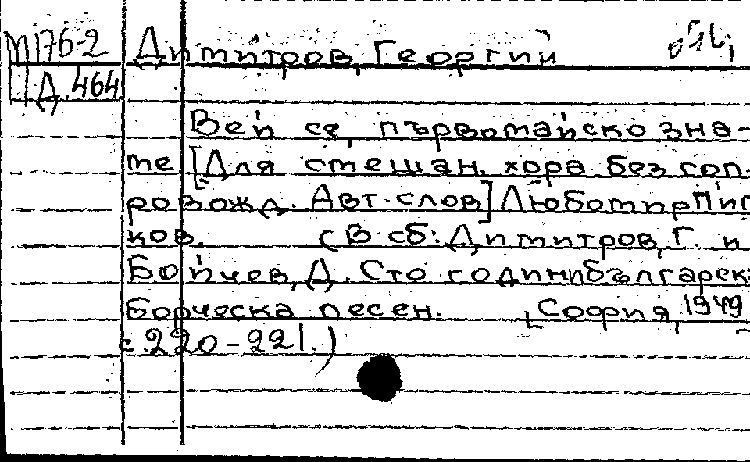 М176-2 Димитров, Георгий
Д.464
Вей се, първомайско зна-
ме [Для смешан. хора без соп-
ровожд. Авт. слов] Любомир Пип
ков. (В сб: Димитров, Г. и
Бойчев, Д. Сто години българск
борческа песен. [София, 1949
с. 220-221.)